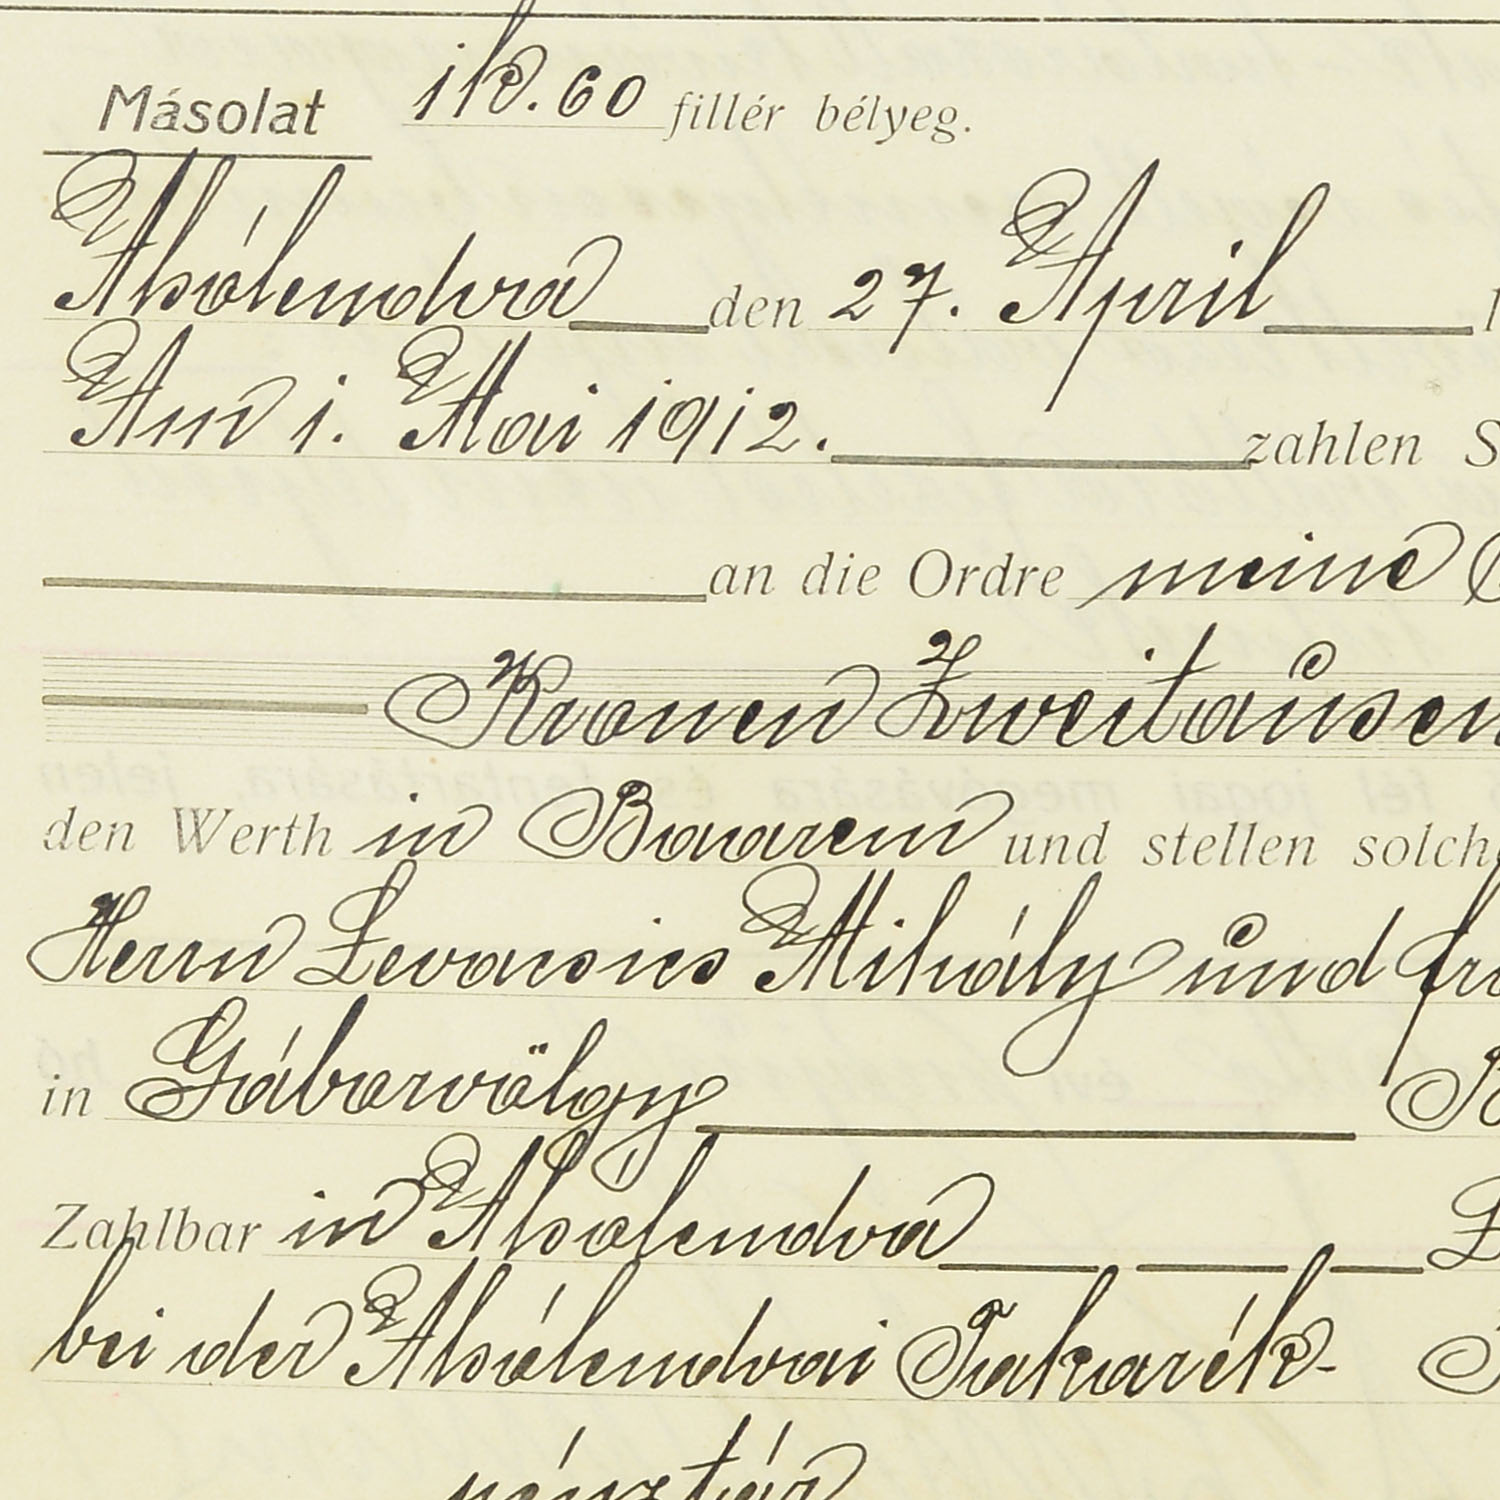 Másolat 1 K. 60 fillér bélyeg.
Alsólendva den 27. April
Am 1. Mai 1912. zahlen S
an die Ordre meine
Kronen Zweitausen
den Werth in Baarem und stellen solch
Herrn Levacsics Mihály und fra
in Gáborvölgy
Zahlbar in Alsólendva
bei der Alsólendvai Takarék-
pénztár